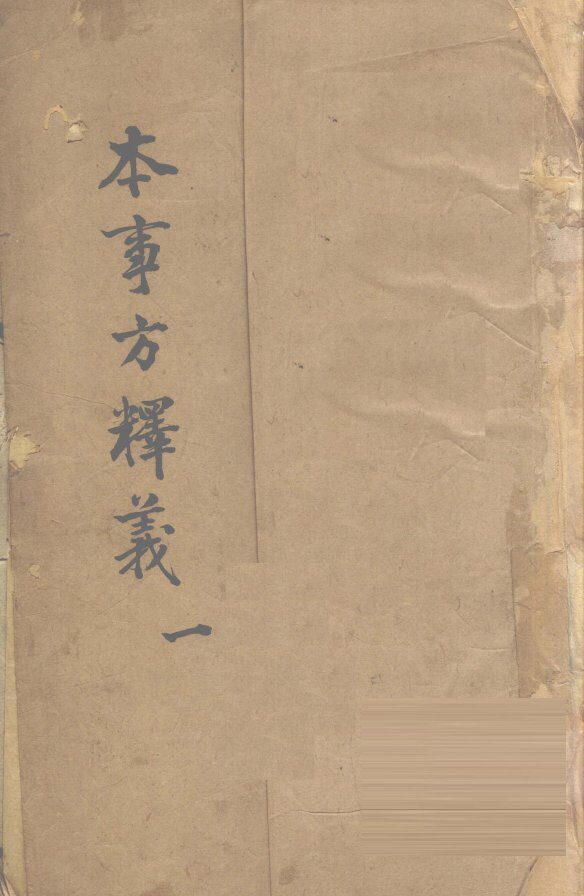 本事方釋義
一